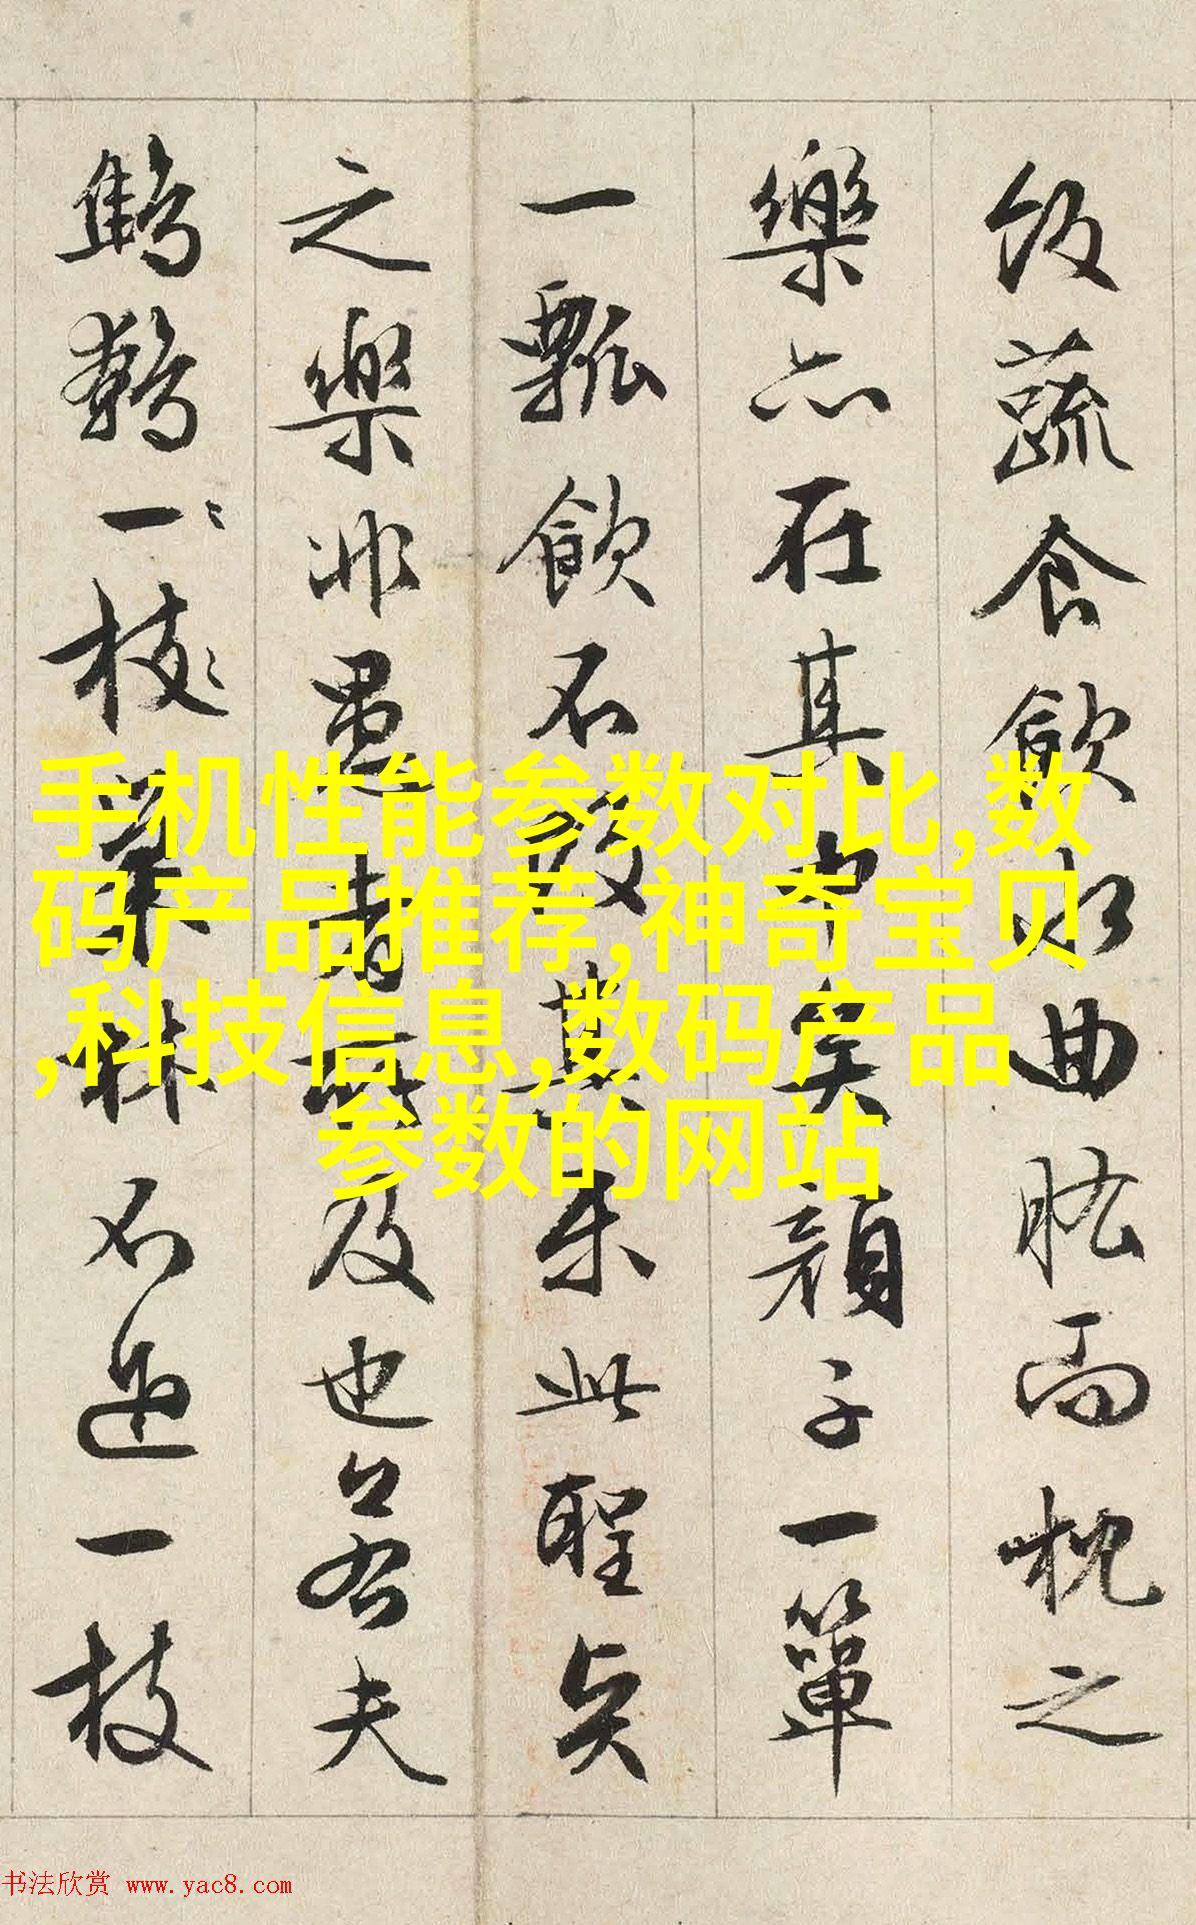 飯蔬食飲水曲肱而枕之
樂亦在其中矣顏子一簞
一瓢飲不改其樂此聖賢
之樂非愚者所及也若夫
鷦鷯一枝巢林不過一枝
手机性能参数对比,数
码产品推荐,神奇宝贝
,科技信息,数码产品
参数的网站
书法欣赏 www.yac8.com